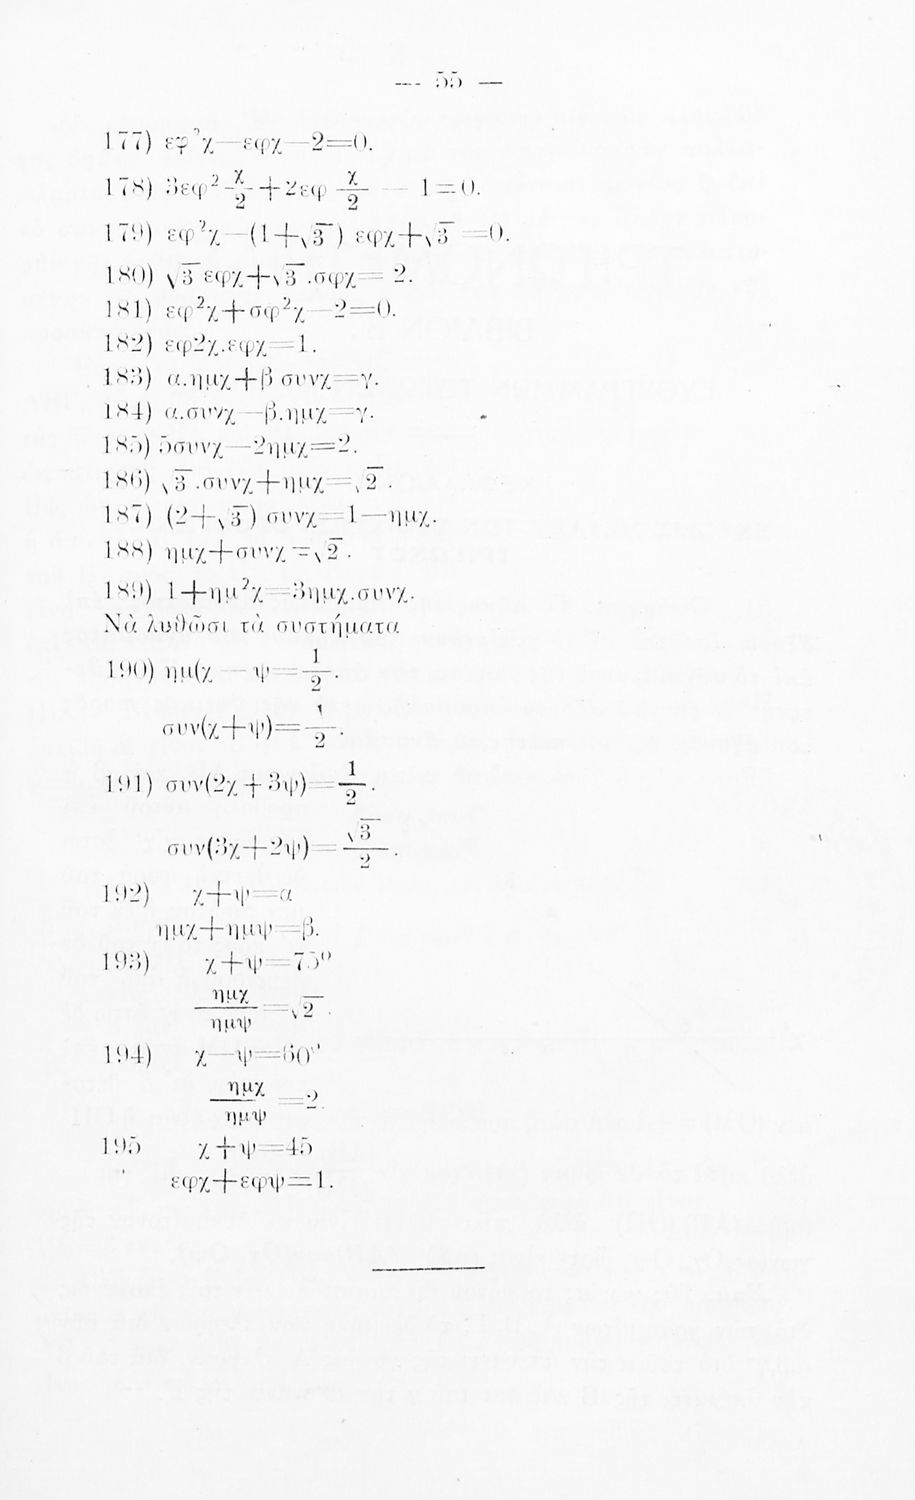 — 55 —
177) εφ²χ—εφχ—2=0.
178) 3εφ² χ/2 + 2εφ χ/2 — 1=0.
179) εφ²χ—(1+√3) εφχ+√3=0.
180) √3 εφχ+√3.σφχ= 2.
181) εφ²χ+σφ²χ—2=0.
182) εφ2χ.εφχ=1.
183) α.ημχ+β συνχ=γ.
184) α.συνχ—β.ημχ=γ.
185) 5συνχ—2ημχ=2.
186) √3.συνχ+ημχ=√2.
187) (2+√3) συνχ=1—ημχ.
188) ημχ+συνχ=√2.
189) 1+ημ²χ=3ημχ.συνχ.
Νὰ λυθῶσι τὰ συστήματα
190) ημ(χ — ψ= 1/2.
συν(χ+ψ)= 1/2.
191) συν(2χ+3ψ)= 1/2.
συν(3χ+2ψ)= √3/2.
192) χ+ψ=α
ημχ+ημψ=β.
193) χ+ψ=75⁰
ημχ/ημψ =√2.
194) χ—ψ=60⁰
ημχ/ημψ =2.
195 χ+ψ=45
εφχ+εφψ=1.